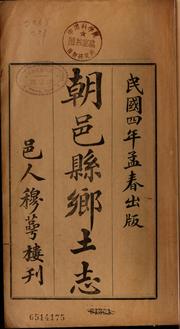 民國四年孟春出版
朝邑縣鄉土志
邑人穆蕚樓刊
6514475